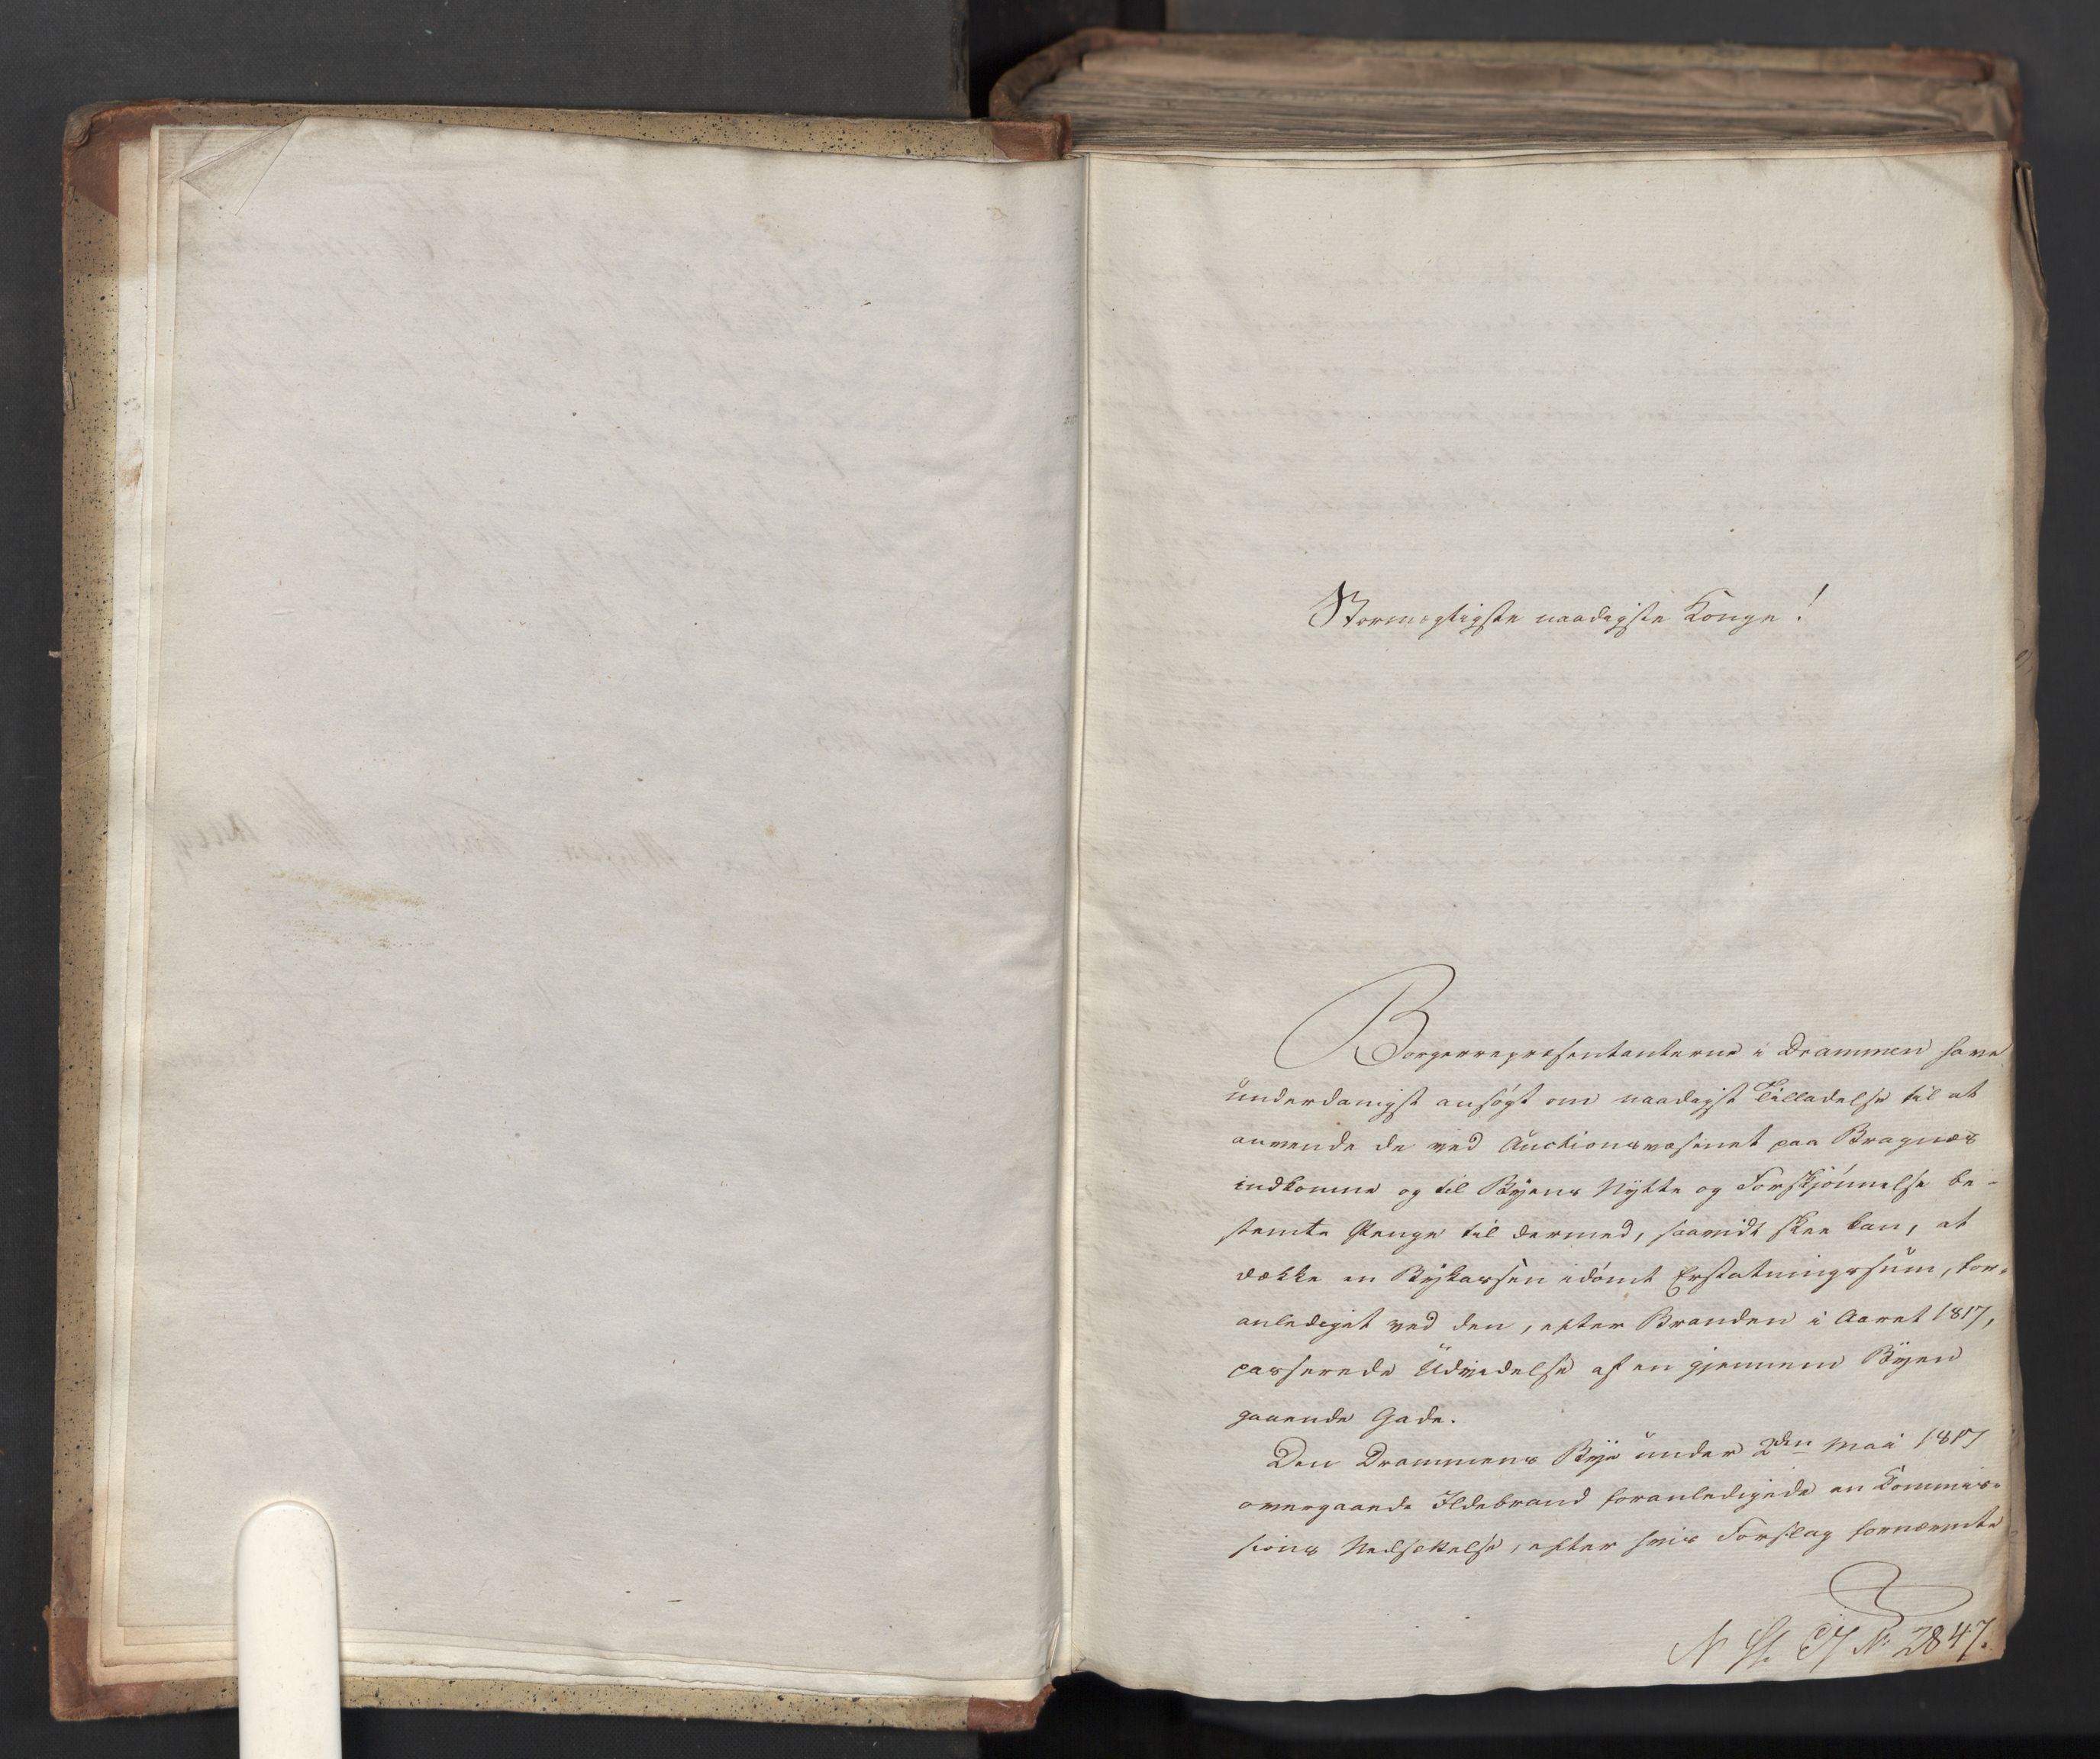 Stormægtigste naadigste Konge!
Borgerrepræsentanterne i Drammen have
underdanigst ansøgt om naadigst Tilladelse til at
anvende de ved Auctionsvæsenet paa Bragnæs
indkomne og til Byens Nytte og Forskjønnelse be-
stemte Penge til dermed, saavidt skee kan, at
dække en Bykassen idømt Erstatningssum, for-
anlediget ved den, efter Branden i Aaret 1817,
passerede Udvidelse af en gjennem Byen
gaaende Gade.
Den Drammens Bye under 2den Mai 1817
overgaaende Ildebrand foranledigede en Kommis-
sions Nedsættelse, efter hvis Forslag fornævnte
No 2847.